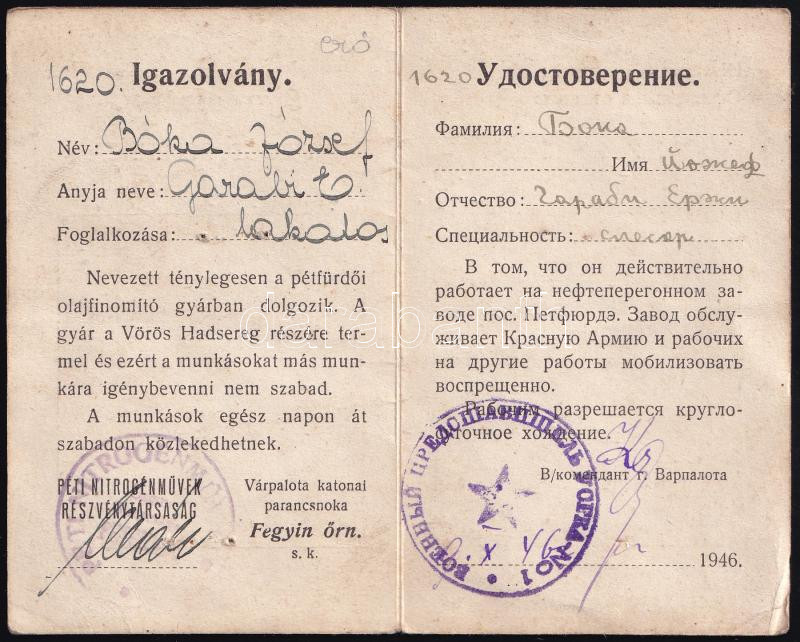 erő
1620. Igazolvány.
Név: Bóka József
Anyja neve: Garabi E.
Foglalkozása: lakatos
Nevezett ténylegesen a pétfürdői
olajfinomító gyárban dolgozik. A
gyár a Vörös Hadsereg részére ter-
mel és ezért a munkásokat más mun-
kára igénybevenni nem szabad.
A munkások egész napon át
szabadon közlekedhetnek.
PÉTI NITROGÉNMŰVEK
RÉSZVÉNYTÁRSASÁG
Várpalota katonai
parancsnoka
Fegyin őrn.
s. k.
1620 Удостоверение.
Фамилия: Бока
Имя Йожеф
Отчество: Гараби Ержи
Специальность: слесар
В том, что он действительно
работает на нефтеперегонном за-
воде пос. Петфюрдэ. Завод обслу-
живает Красную Армию и рабочих
на другие работы мобилизовать
воспрещенно.
Рабочим разрешается кругло-
суточное хождение.
В/комендант г. Варпалота
ВОЕННЫЙ ПРЕДСТАВИТЕЛЬ No 1
X 46
1946.
darabanth